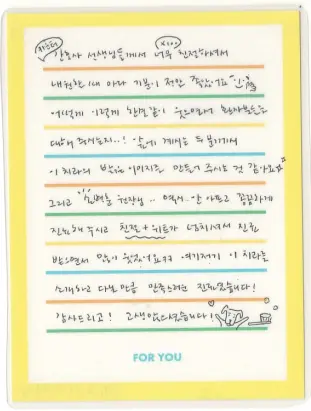 간호사 선생님들께서 너무 친절하셔서
x100
내원할 때 마다 기분이 정말 좋았어요
어떻게 이렇게 한결같이 웃으면서 환자분들을
대해 주시는지..! 앞에 계시는 두 분께서
이 치과의 밝은 이미지를 만들어 주시는 것 같아요
그리고 원장님.. 역시.. 안 아프고 꼼꼼하게
진료해 주시고 친절 + 위트가 넘치셔서 진료
받으면서 많이 웃었어요ㅋㅋ 여기저기 이 치과를
소개하고 다닐 만큼 만족스러운 진료였습니다!
감사드리고! 고생많으셨습니다!
FOR YOU